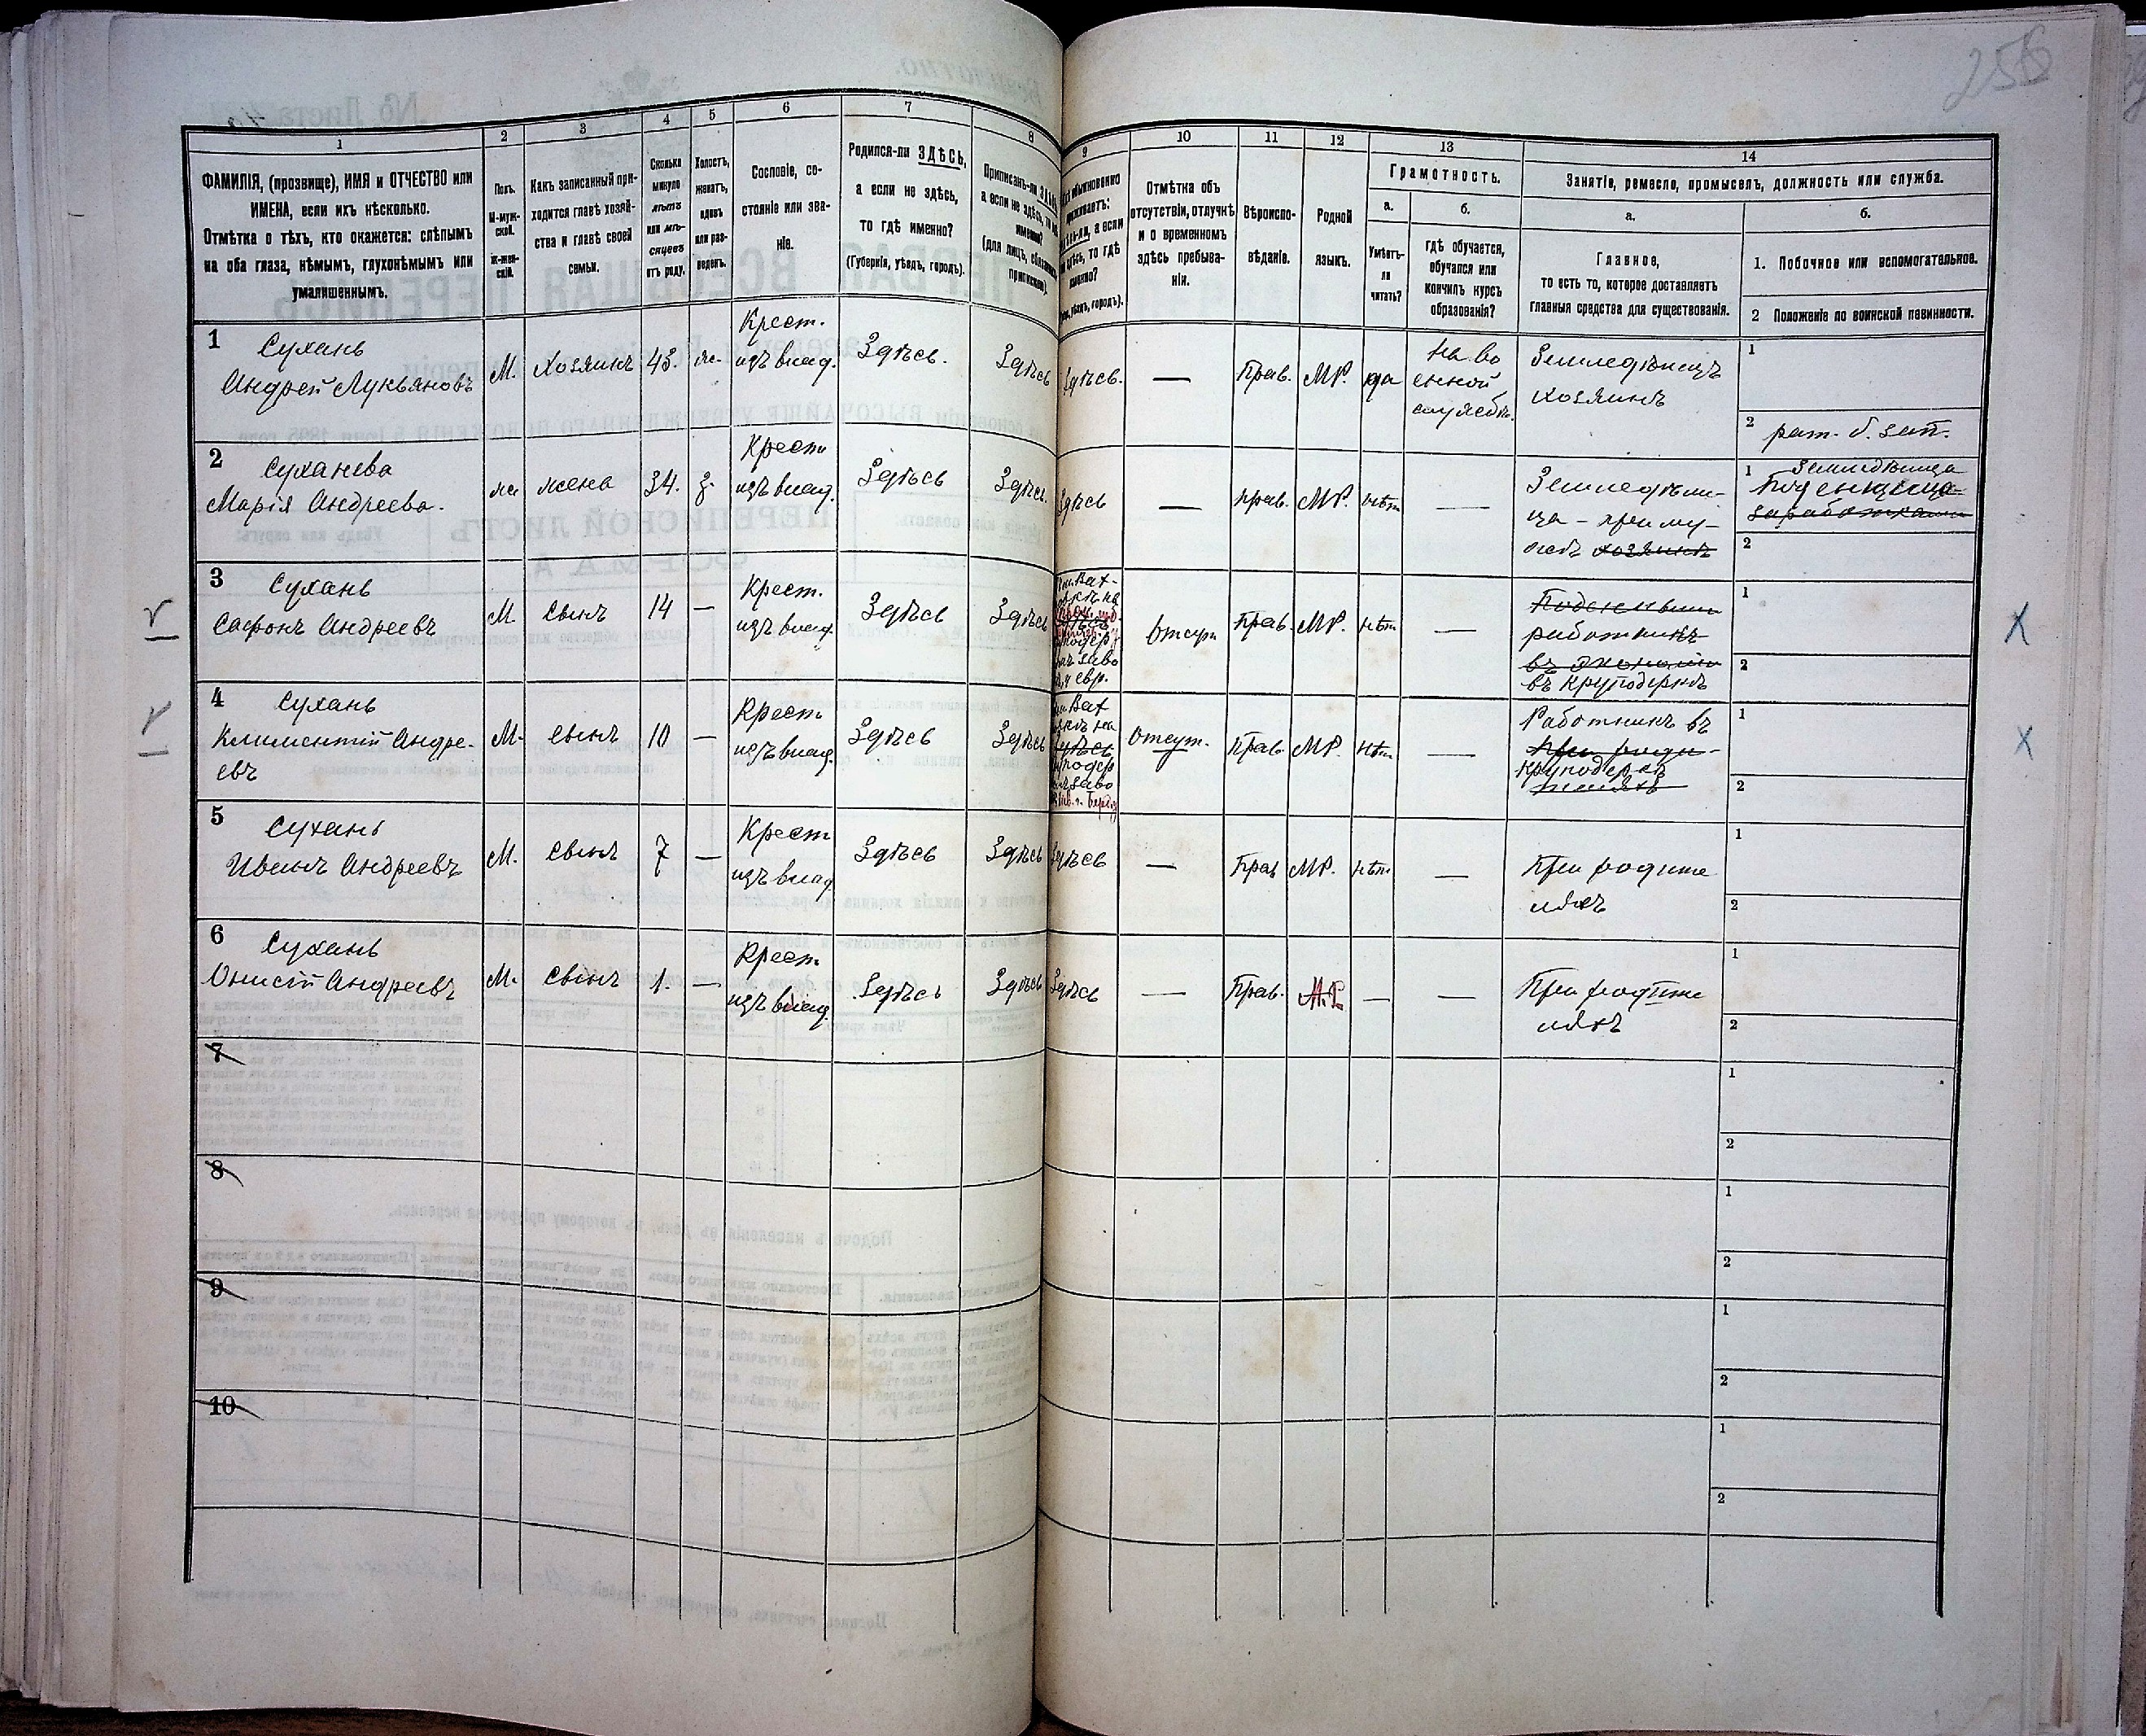 256
1
2
3
4
5
6
7
8
9
10
11
12
13
14
ФАМИЛІЯ, (прозвище), ИМЯ и ОТЧЕСТВО или
ИМЕНА, если ихъ нѣсколько.
Отмѣтка о тѣхъ, кто окажется: слѣпымъ
на оба глаза, нѣмымъ, глухонѣмымъ или
умалишеннымъ.
Полъ.
М-муж-
ской.
Ж-жен-
скій.
Какъ записанный при-
ходится главѣ хозяй-
ства и главѣ своей
семьи.
Сколько
минуло
лѣтъ
или мѣ-
сяцевъ
отъ роду.
Холостъ,
женатъ,
вдовъ
или раз-
веденъ.
Сословіе, со-
стояніе или зва-
ніе.
Родился-ли ЗДѢСЬ,
а если не здѣсь,
то гдѣ именно?
(Губернія, уѣздъ, городъ).
Приписанъ-ли ЗДѢСЬ,
а если не здѣсь, то гдѣ
именно?
(для лицъ, обязанныхъ
припискою).
Отмѣтка объ
отсутствіи, отлучкѣ
и о временномъ
здѣсь пребыва-
ніи.
Вѣроиспо-
вѣданіе.
Родной
языкъ.
Грамотность.
а.
Умѣетъ-
ли
читать?
б.
гдѣ обучается,
обучался или
кончилъ курсъ
образованія?
Занятіе, ремесло, промыселъ, должность или служба.
а.
Главное,
то есть то, которое доставляетъ
главныя средства для существованія.
б.
1. Побочное или вспомогательное.
2 Положеніе по воинской повинности.
1
Сухань
Андрей Лукьяновъ
М.
Хозяинъ
43.
ж.
Крест.
изъ влад.
Здѣсь.
Здѣсь
Здѣсь.
—
Прав.
МР.
да
на во
енной
службѣ.
Земледѣлецъ
хозяинъ
1
2 рат. о. зап.
2
Суханева
Марія Андреева.
ж
жена
34.
з.
Крест
изъ влад.
Здѣсь
Здѣсь.
Здѣсь
—
прав.
МР.
нѣт
—
Земледѣли-
ца - при му-
жѣ хозяинъ
1 Земледѣлица
Поденщица
заработками
2
3
Сухань
Сафонъ Андреевъ
М.
сынъ
14
—
Крест.
изъ влад.
Здѣсь
Здѣсь
Отсут
Прав.
МР.
нѣт
—
работникъ
въ экономіи
въ круподернѣ
1
2
4
Сухань
Климентій Андре-
евъ
М.
сынъ
10
—
Крест
изъ влад.
Здѣсь
Здѣсь
Отсут.
Прав
МР.
нѣт
—
Работникъ въ
при роди-
круподернѣ
теляхъ
1
2
5
Сухань
Иванъ Андреевъ
М.
сынъ
7
—
Крест
изъ влад
Здѣсь
Здѣсь
Здѣсь
—
Прав
МР.
нѣт
—
При родите
ляхъ
1
2
6
Сухань
Онисій Андреевъ
М.
сынъ
1.
—
Крест
изъ влад.
Здѣсь
Здѣсь
Здѣсь
—
Прав.
М.Р.
—
—
При родите
ляхъ
1
2
7
1
2
8
1
2
9
1
2
10
1
2